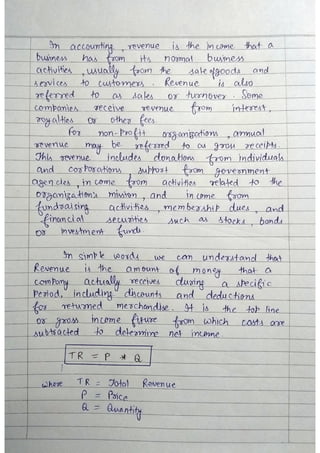 In accounting, revenue is the income that a
business has from its normal business
activities, usually from the sale of goods and
services to customers. Revenue is also
referred to as sales or turnover. Some
companies receive revenue from interest,
royalties or other fees.
For non-profit organizations, annual
revenue may be referred to as gross receipts.
This revenue includes donations from individuals
and corporations, support from government
agencies, income from activities related to the
organization's mission, and income from
fundraising activities, membership dues, and
financial securities such as stocks, bonds
or investment funds.
In simple words we can understand that
Revenue is the amount of money that a
company actually receives during a specific
Period, including discounts and deductions
for returned merchandise. It is the top line
or gross income figure from which costs are
subtracted to determine net income.
TR = P * Q
where TR = Total Revenue
P = Price
Q = Quantity